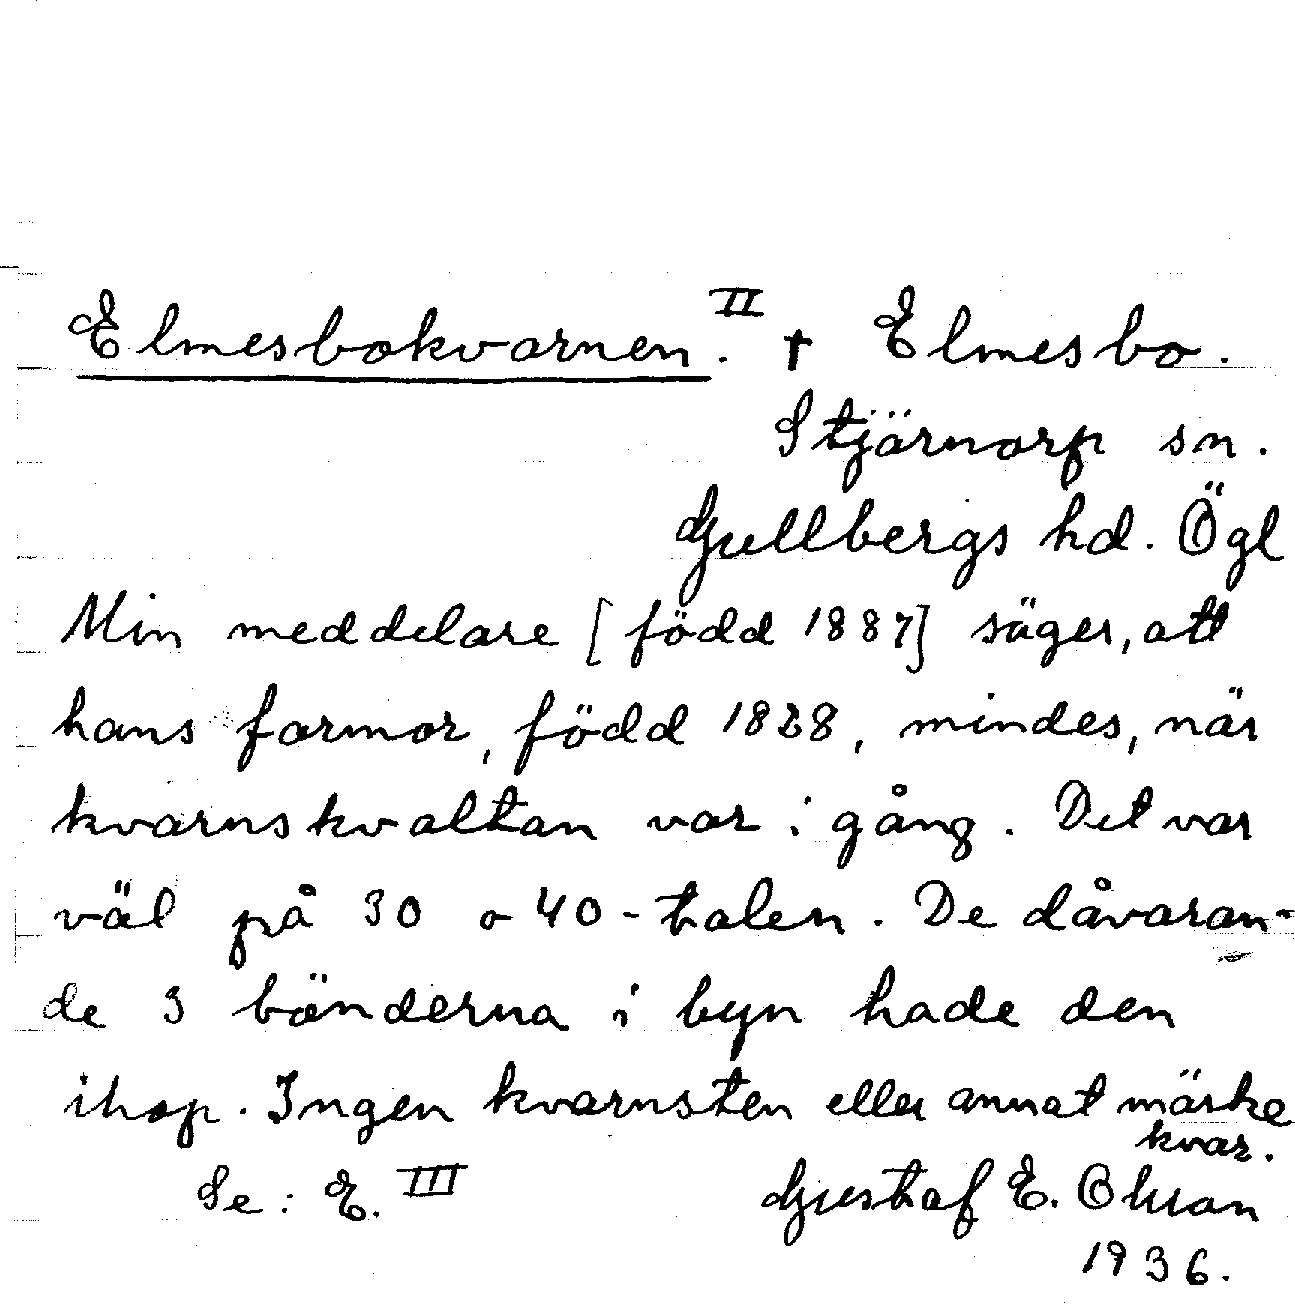 Elmesbokvarnen.II † Elmesbo.
Stjärnorp sn.
Gullbergs hd. Ögl
Min meddelare [född 1887] säger, att
hans farmor, född 1828, mindes, när
kvarnskvaltan var i gång. Det var
väl på 30 o 40-talen. De dåvaran-
de 3 bönderna i byn hade den
ihop. Ingen kvarnsten eller annat märke
kvar.
Se: E. III Gustaf E. Olsson
1936.